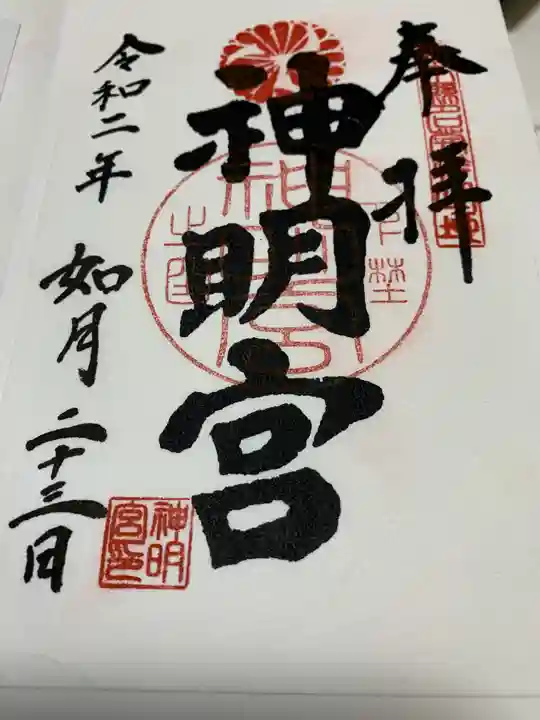 奉拝
神明宮
令和二年 如月 二十三日
神明
宮印